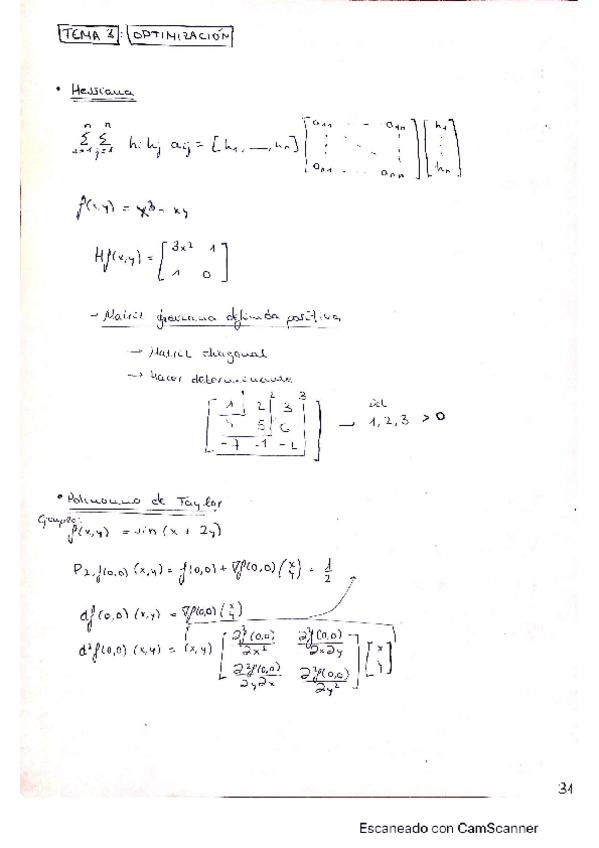 TEMA 3: OPTIMIZACIÓN
• Hessiana
n n
∑ ∑ hi hj aij = [h1, __, hn] [a11 - - a1n ... an1 ... ann] [h1 ⋮ hn]
i=1 j=1
f(x,y) = x3 - xy
Hf(x,y) = [3x2 1
1 0]
- Matriz definida positiva
→ Matriz diagonal
→ Hacer determinante
1 2 3
[1 2 3
5 6
-7 -1 -1] — det 1, 2, 3 > 0
• Polinomio de Taylor
Ejemplo:
f(x,y) = sin(x + 2y)
P2,f(0,0) (x,y) = f(0,0) + ∇f(0,0) (x y) = 1/2
df(0,0) (x,y) = ∇f(0,0) (x y)
d²f(0,0) (x,y) = (x,y) [∂²f(0,0)/∂x² ∂²f(0,0)/∂x∂y
∂²f(0,0)/∂y∂x ∂²f(0,0)/∂y²] [x y]
31
Escaneado con CamScanner